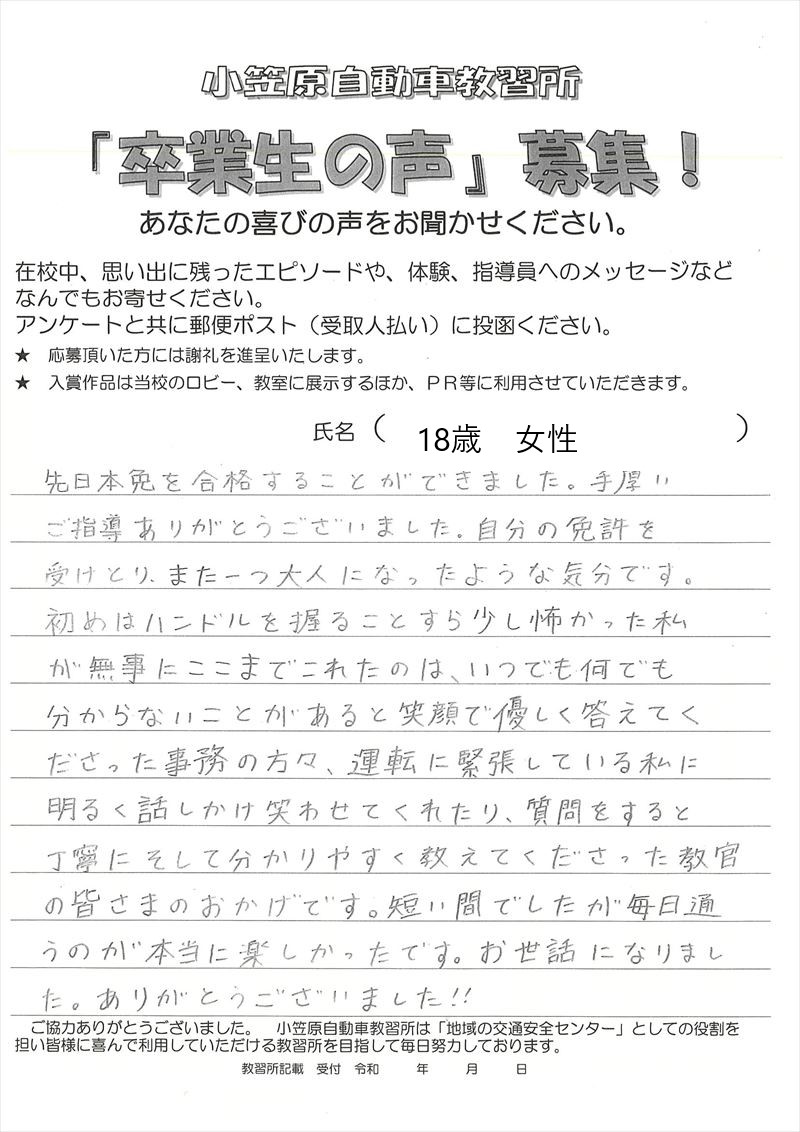 小笠原自動車教習所
『卒業生の声』募集！
あなたの喜びの声をお聞かせください。
在校中、思い出に残ったエピソードや、体験、指導員へのメッセージなど
なんでもお寄せください。
アンケートと共に郵便ポスト（受取人払い）に投函ください。
★　応募頂いた方には謝礼を進呈いたします。
★　入賞作品は当校のロビー、教室に展示するほか、ＰＲ等に利用させていただきます。
氏名（　18歳　女性　）
先日本免を合格することができました。手厚い
ご指導ありがとうございました。自分の免許を
受けとり、また一つ大人になったような気分です。
初めはハンドルを握ることすら少し怖かった私
が無事にここまでこれたのは、いつでも何でも
分からないことがあると笑顔で優しく答えてく
ださった事務の方々、運転に緊張している私に
明るく話しかけ笑わせてくれたり、質問をすると
丁寧にそして分かりやすく教えてくださった教官
の皆さまのおかげです。短い間でしたが毎日通
うのが本当に楽しかったです。お世話になりまし
た。ありがとうございました!!
ご協力ありがとうございました。　小笠原自動車教習所は「地域の交通安全センター」としての役割を
担い皆様に喜んで利用していただける教習所を目指して毎日努力しております。
教習所記載　受付　令和　　年　　月　　日